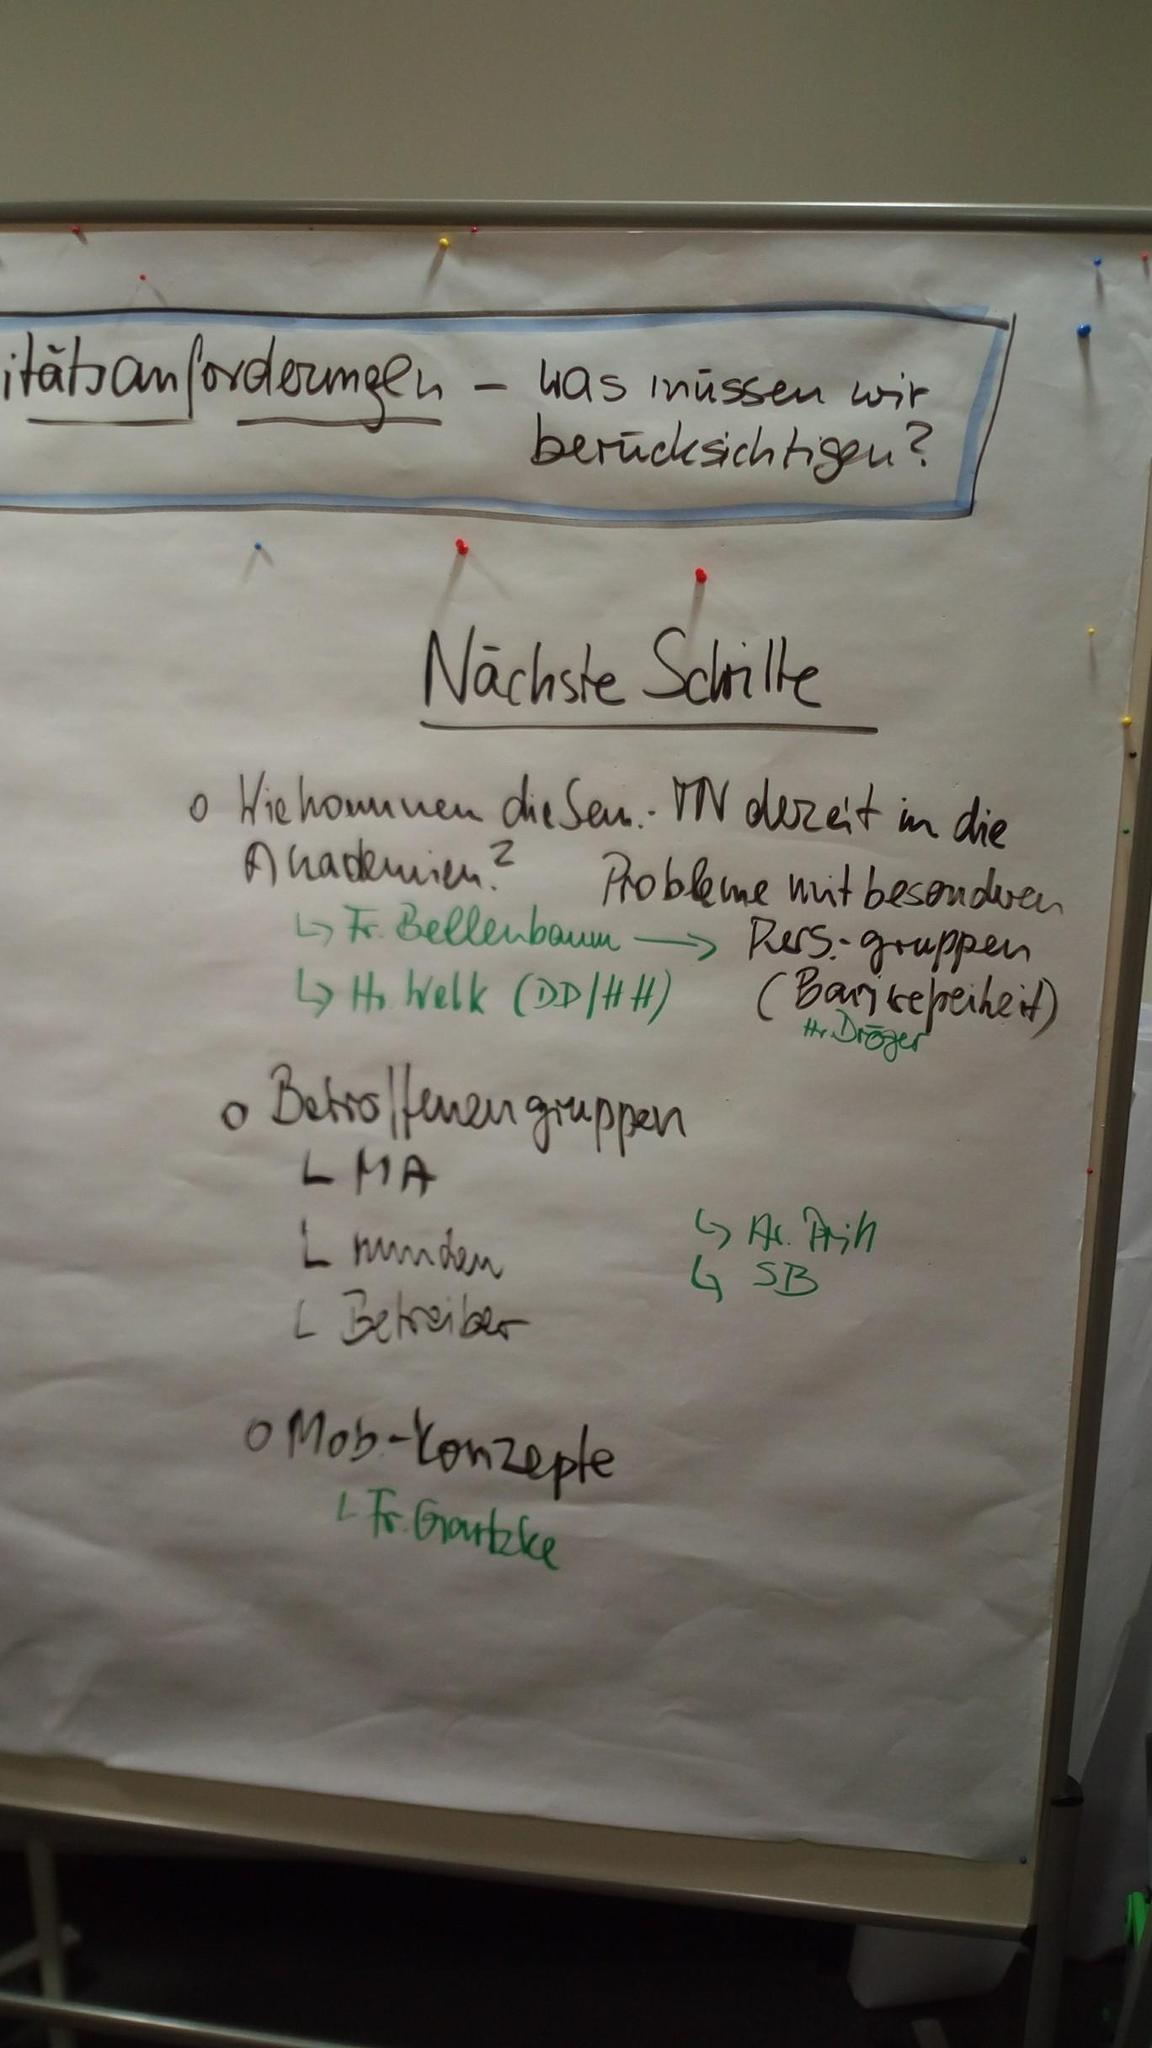 itätsanforderungen – was müssen wir
berücksichtigen?
Nächste Schritte
o Wie kommen die Sem.- TN derzeit in die
Akademien?
Probleme mit besonderen
↳ Fr. Bellenbaum → Pers.-gruppen
↳ Hr. Welk (DD/HH) (Barrierefreiheit)
Hr. Dröger
o Betroffenengruppen
└ MA
└ Kunden
└ Betreiber
↳
↳ SB
o Mob.-Konzepte
└ Fr. Gartzke